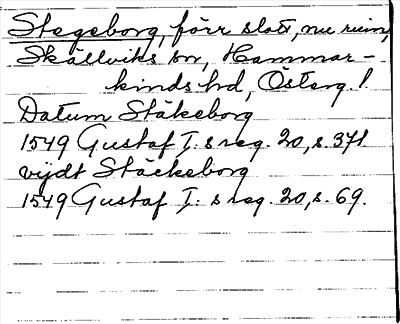 Stegeborg, förr slott, nu ruin,
Skällviks sn, Hammar-
kinds hd, Österg. l.
Datum Stäkeborg
1549 Gustaf I:s reg. 20, s. 371.
vijdt Stäckeborg
1549 Gustaf I:s reg. 20, s. 69.